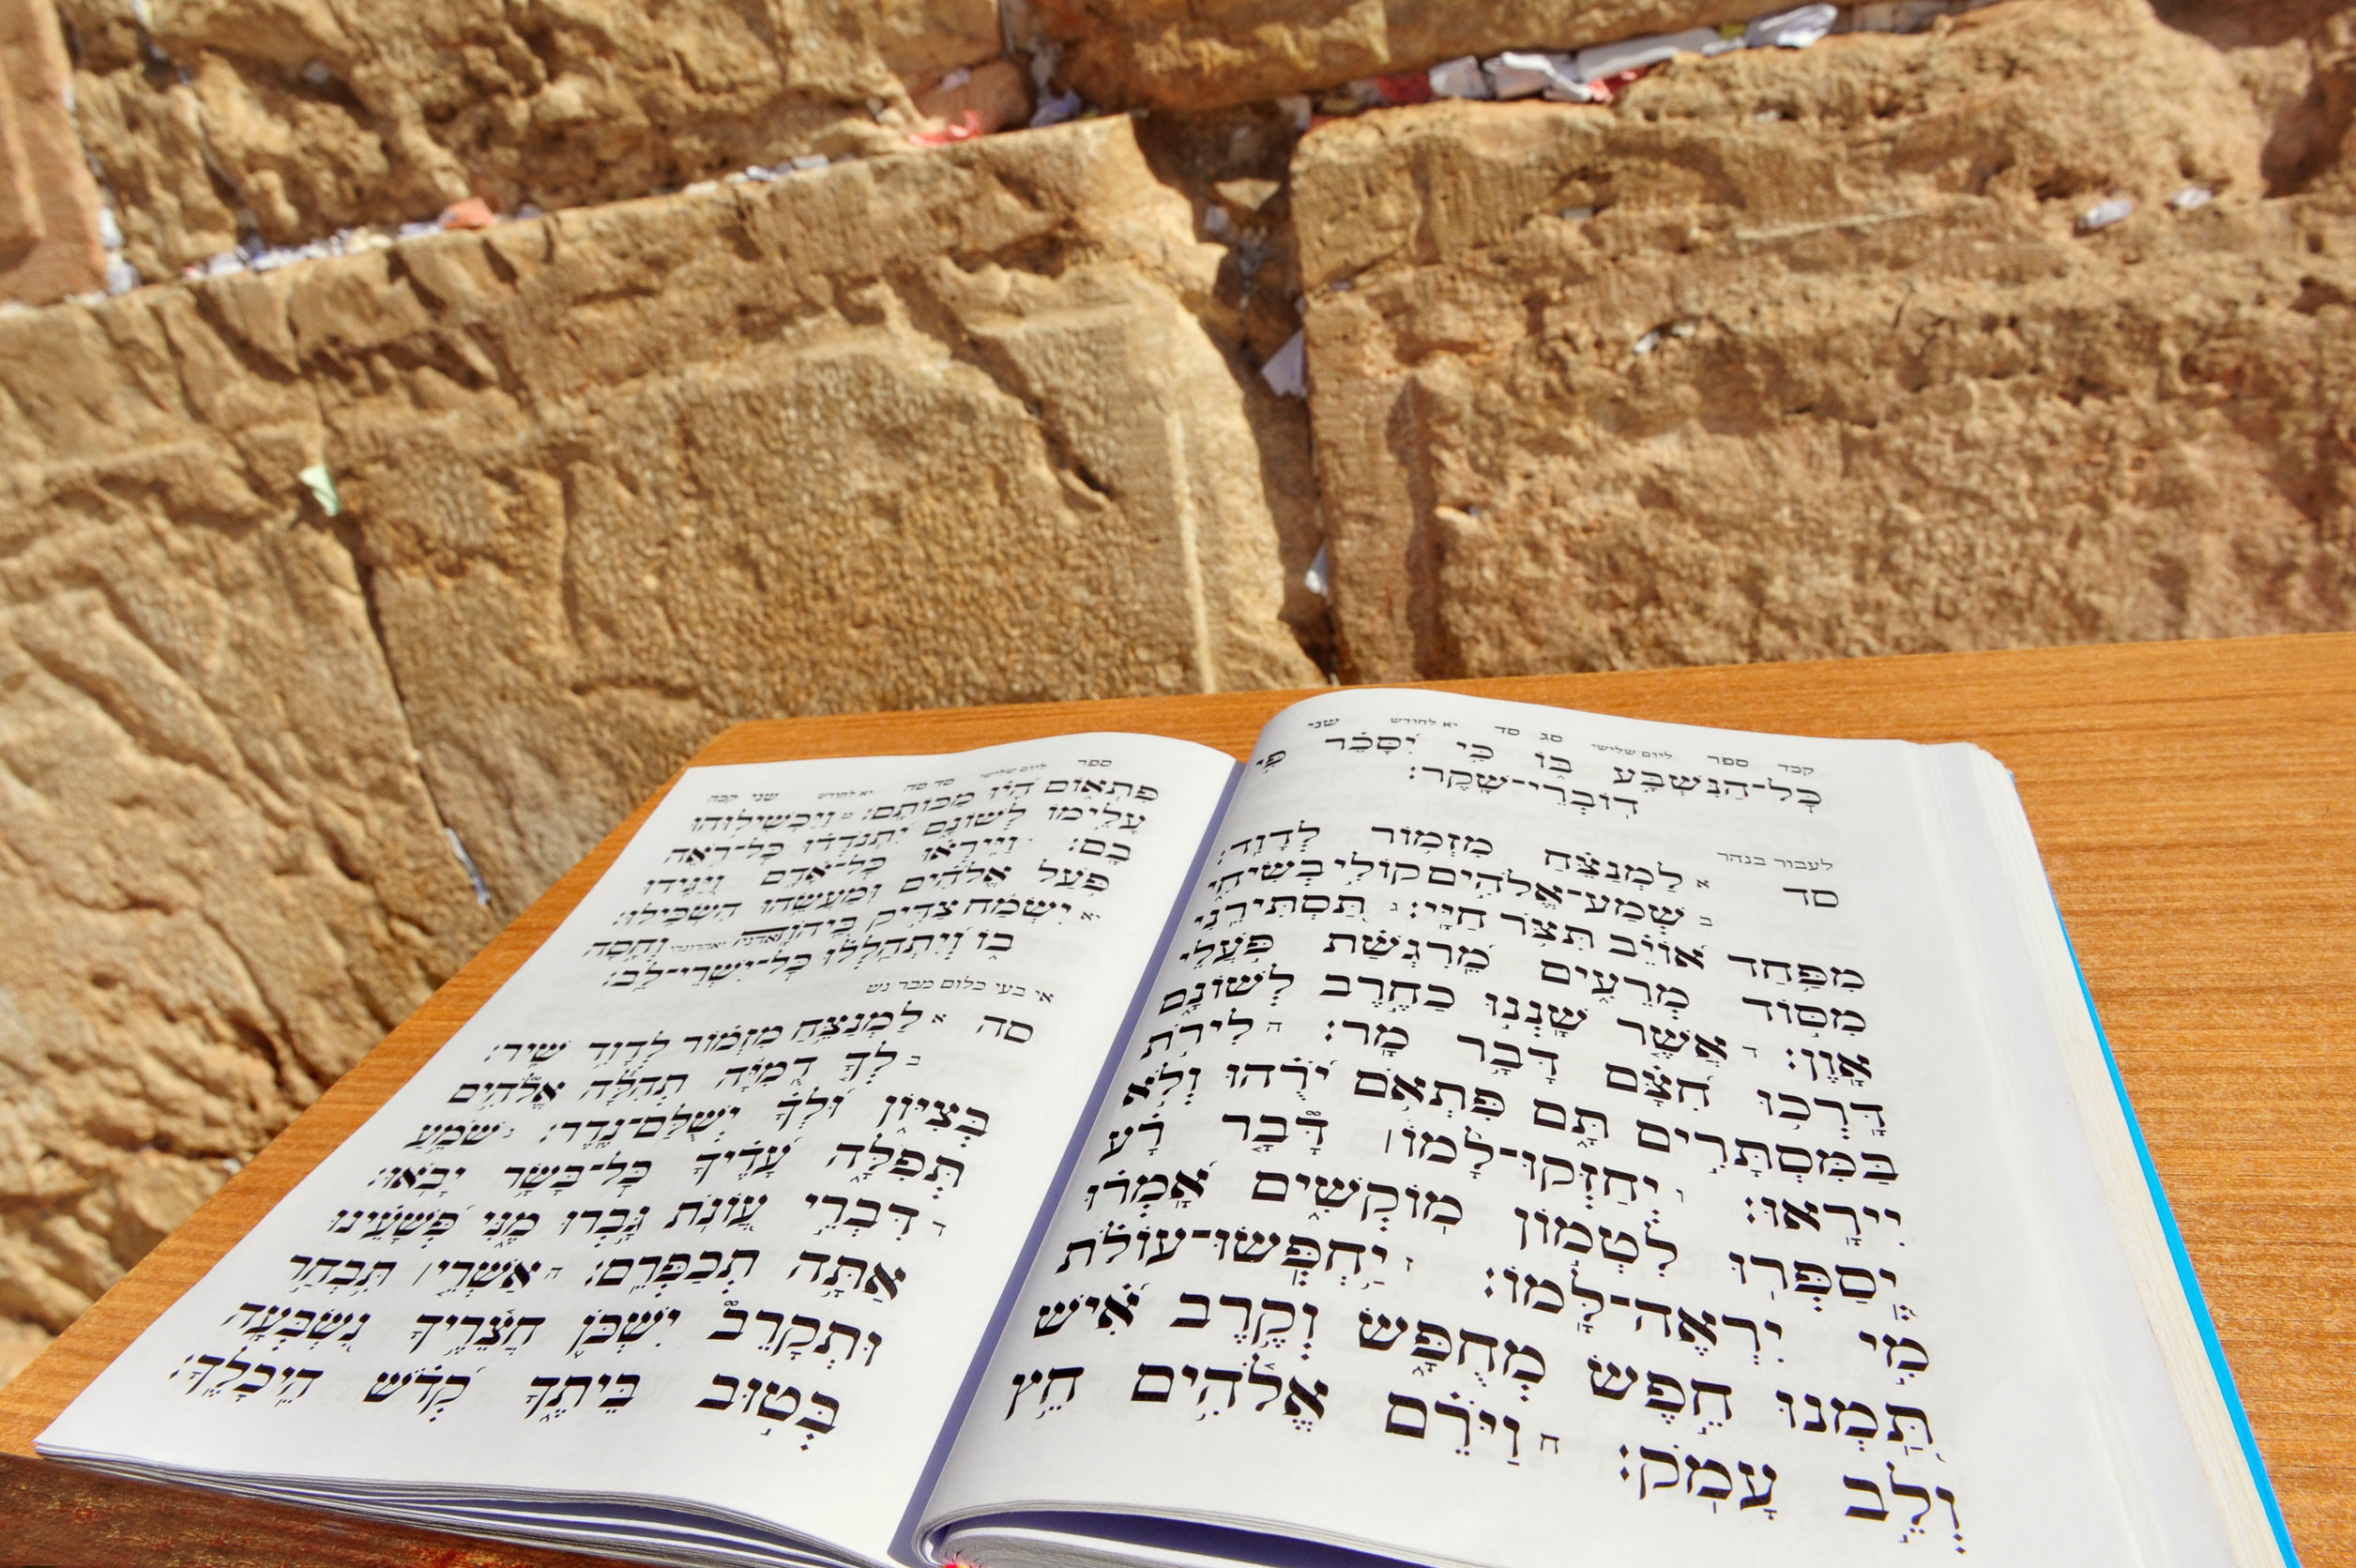 קכד ספר ליום שלישי סג סד יא לחודש שני
כׇּל־הַנִּשְׁבָּע בּוֹ כִּי יִסָּכֵר פִּי
דוֹבְרֵי־שָׁקֶר:
לעבור בנהר
סד א לַמְנַצֵּחַ מִזְמוֹר לְדָוִד:
ב שְׁמַע־אֱלֹהִים קוֹלִי בְשִׂיחִי
מִפַּחַד אוֹיֵב תִּצֹּר חַיָּי: ג תַּסְתִּירֵנִי
מִסּוֹד מְרֵעִים מֵרִגְשַׁת פֹּעֲלֵי
אָוֶן: ד אֲשֶׁר שָׁנְנוּ כַחֶרֶב לְשׁוֹנָם
דָּרְכוּ חִצָּם דָּבָר מָר: ה לִירֹת
בַּמִּסְתָּרִים תָּם פִּתְאֹם יֹרֻהוּ וְלֹא
יִירָאוּ: ו יְחַזְּקוּ־לָמוֹ | דָּבָר רָע
יְסַפְּרוּ לִטְמוֹן מוֹקְשִׁים אָמְרוּ
מִי יִרְאֶה־לָּמוֹ: ז יַחְפְּשׂוּ־עוֹלֹת
תַּמְנוּ חֵפֶשׂ מְחֻפָּשׂ וְקֶרֶב אִישׁ
וְלֵב עָמֹק: ח וַיֹּרֵם אֱלֹהִים חֵץ
ספר ליום שלישי סד סה יא לחודש שני קכה
פִּתְאוֹם הָיוּ מַכּוֹתָם: ט וַיַּכְשִׁילוּהוּ
עָלֵימוֹ לְשׁוֹנָם יִתְנֹדְדוּ כׇּל־רֹאֵה
בָם: וַיִּירְאוּ כׇּל־אָדָם וַיַּגִּידוּ
פֹּעַל אֱלֹהִים וּמַעֲשֵׂהוּ הִשְׂכִּילוּ:
יא יִשְׂמַח צַדִּיק בַּיהוָה וְחָסָה
בוֹ וְיִתְהַלְלוּ כׇּל־יִשְׁרֵי־לֵב:
אי בעי כלום מבר נש
סה א לַמְנַצֵּחַ מִזְמוֹר לְדָוִד שִׁיר:
ב לְךָ דֻמִיָּה תְהִלָּה אֱלֹהִים
בְּצִיּוֹן וּלְךָ יְשֻׁלַּם־נֶדֶר: ג שֹׁמֵעַ
תְּפִלָּה עָדֶיךָ כׇּל־בָּשָׂר יָבֹאוּ:
ד דִּבְרֵי עֲוֺנֹת גָּבְרוּ מֶנִּי פְּשָׁעֵינוּ
אַתָּה תְכַפְּרֵם: ה אַשְׁרֵי | תִּבְחַר
וּתְקָרֵב יִשְׁכֹּן חֲצֵרֶיךָ נִשְׂבְּעָה
בְּטוּב בֵּיתֶךָ קְדֹשׁ הֵיכָלֶךָ: